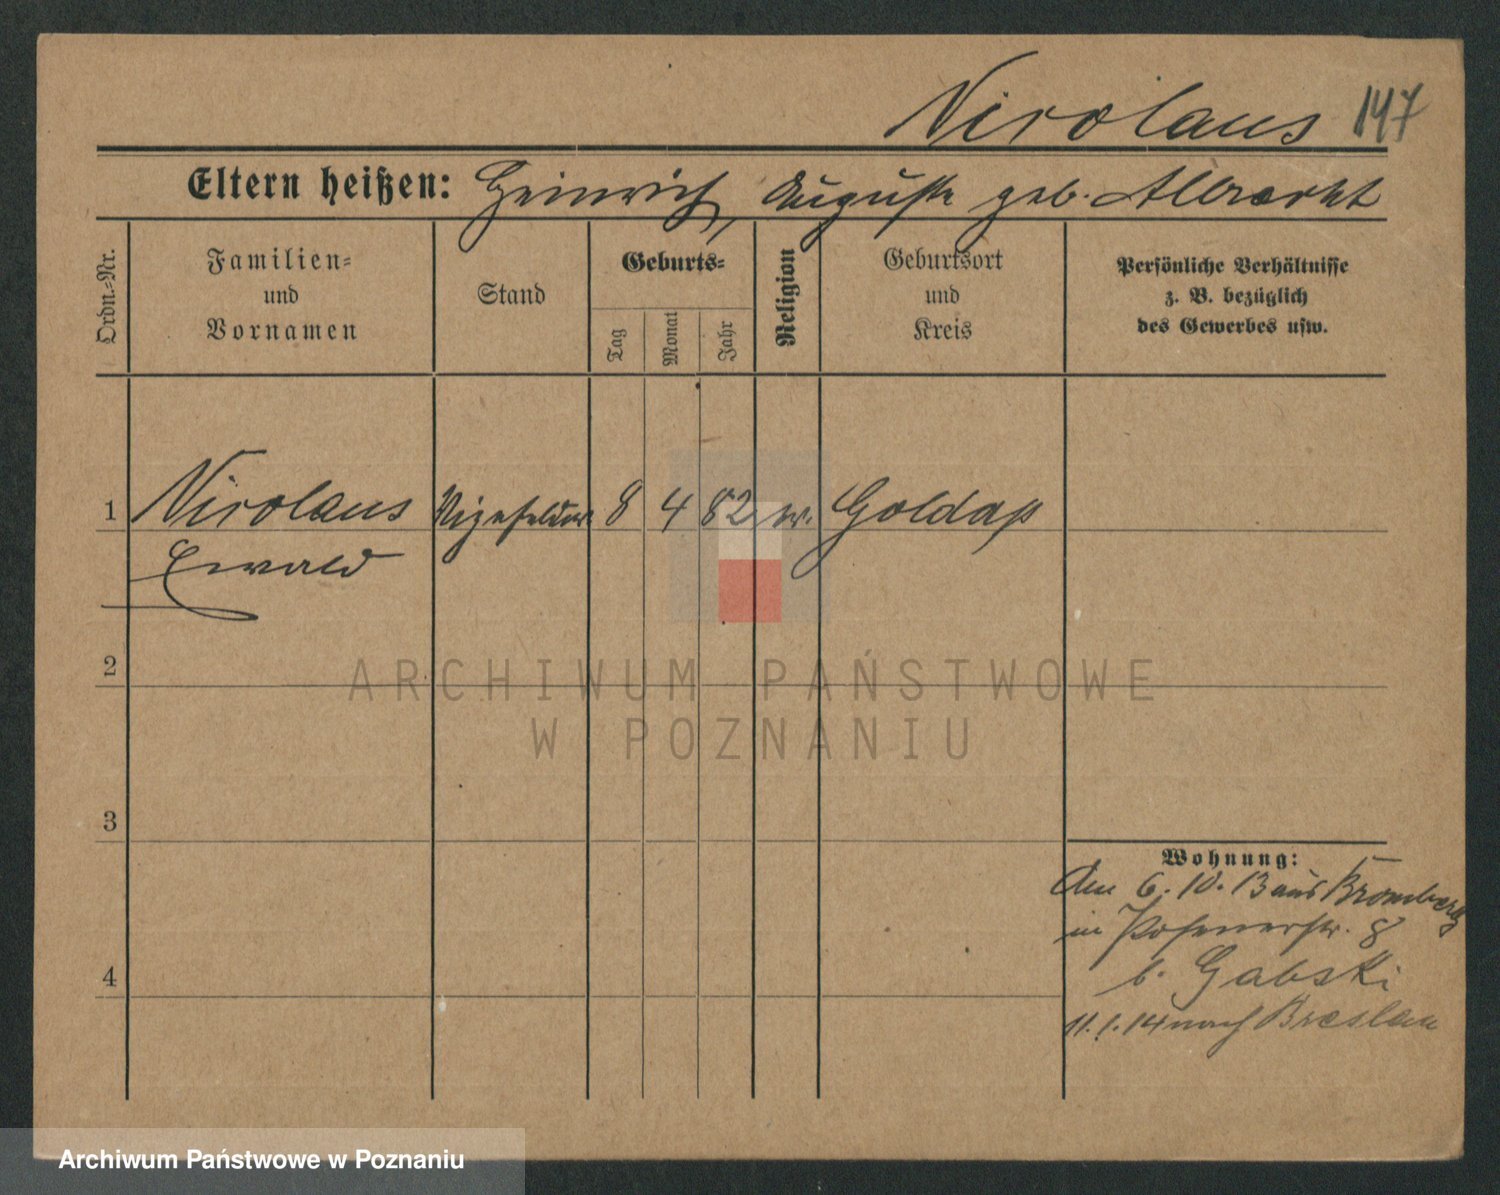 Nicolaus 147
Eltern heißen: Heinrich, Auguste geb. Albrecht
Ordn.-Nr.
Familien-
und
Vornamen
Stand
Geburts-
Tag
Monat
Jahr
Religion
Geburtsort
und
Kreis
Persönliche Verhältnisse
z. B. bezüglich
des Gewerbes usw.
1 Nicolaus 8 4 82 Goldap
Ewald
2
3
4
Wohnung:
Am 6.10.13 aus Bromberg
in Posenerstr. 8
b. Gabski
11.1.14 nach Breslau
ARCHIWUM PAŃSTWOWE
W POZNANIU
Archiwum Państwowe w Poznaniu